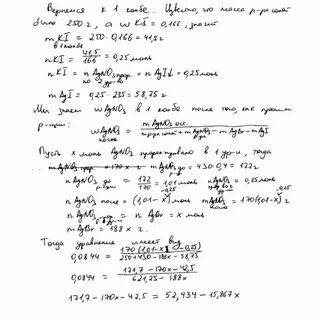 Вернемся к 1 колбе. Известно, что масса р-ра солей
было 250 г, а w KI = 0,166, значит
m KI = 250 · 0,166 = 41,5 г
в 1 колбе
n KI = 41,5 / 166 = 0,25 моль
n KI = n AgNO3 = n AgI↓ = 0,25 моль
по 2 ур-ю
m AgI = 0,25 · 235 = 58,75 г
Мы знаем w AgNO3 в 1 колбе после того, как прошли
р-ции:
w AgNO3 = m AgNO3 ост. / m р-ра солей + m AgNO3 - m AgBr - m AgI
р-ра
Пусть x моль AgNO3 прореагировало в 1 ур-и, тогда
m AgNO3 = 430 · 0,4 = 172 г
n AgNO3 до р-ции = 172 / 170 = 1,01 моль n AgNO3 = 0,25 моль
n AgNO3 после = (1,01 - x - 0,25) моль m AgNO3 после = 170(1,01 - x - 0,25) г
n AgNO3 = n AgBr = x моль
m AgBr = 188 x г.
Тогда уравнение имеет вид
0,0844 = 170 (1,01 - x - 0,25) / 250 + 430 - 188x - 58,75
0,0844 = 171,7 - 170x - 42,5 / 621,25 - 188x
171,7 - 170x - 42,5 = 52,434 - 15,867x